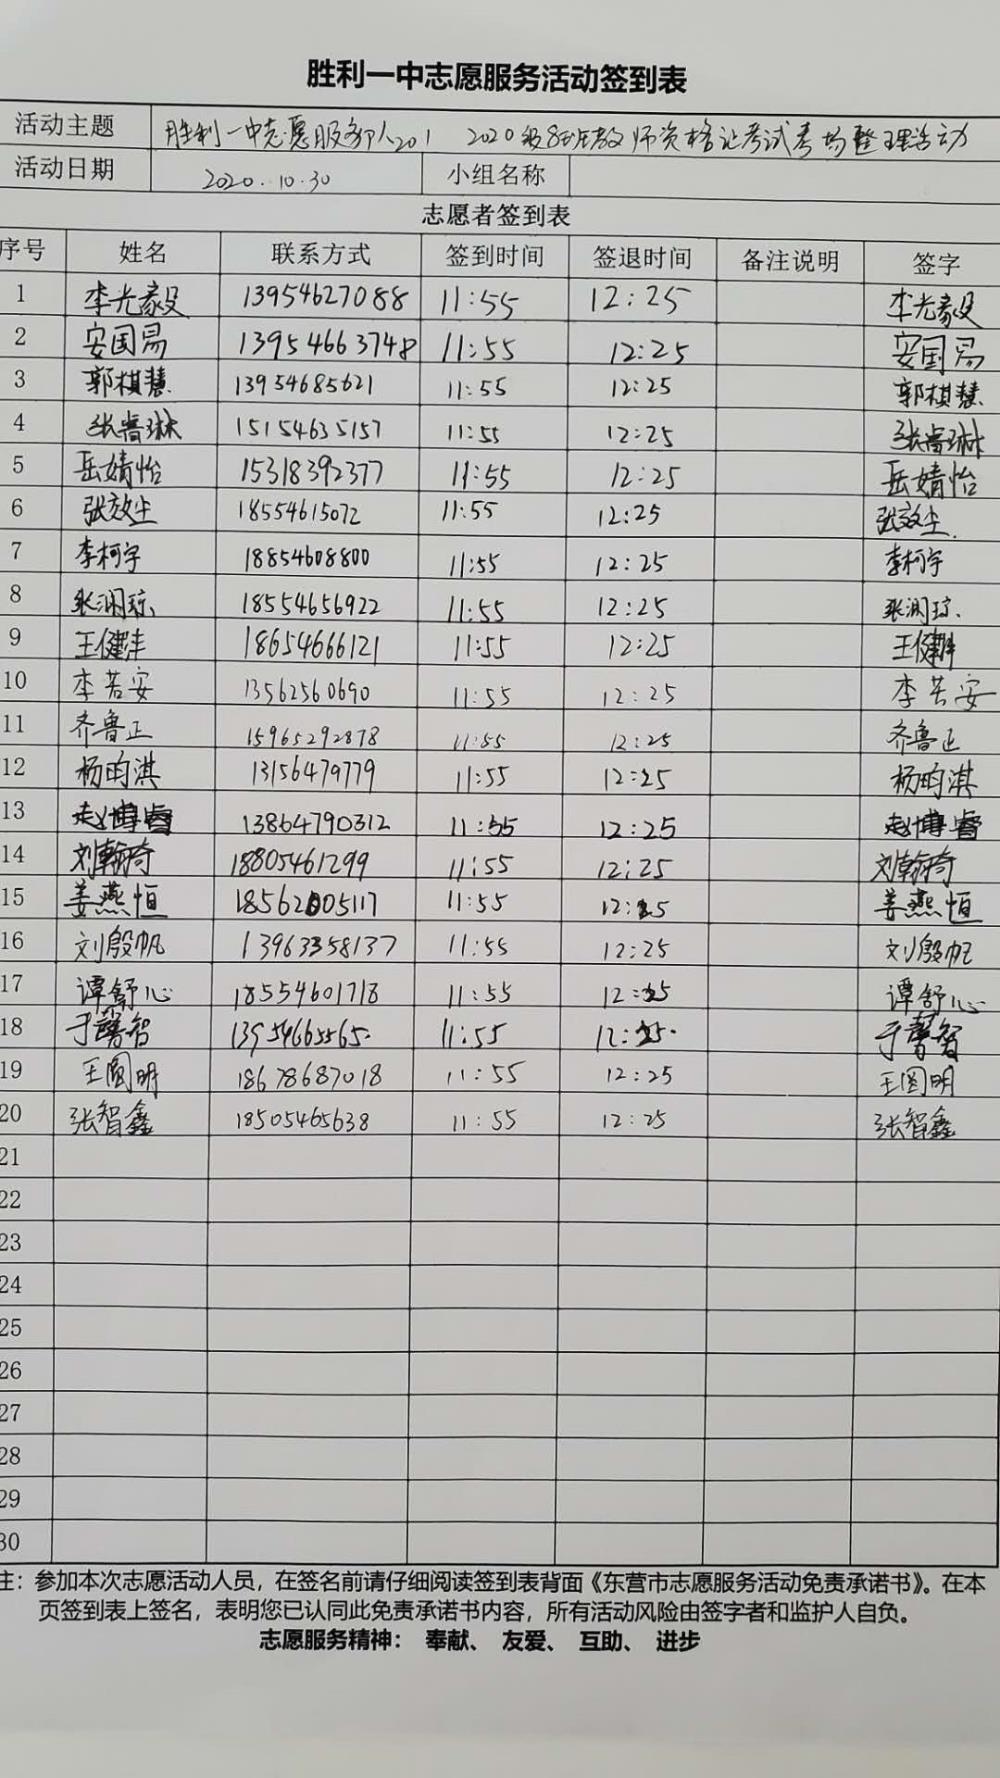 胜利一中志愿服务活动签到表
活动主题 胜利一中志愿服务队201 2020级8班教师资格证考试考场整理活动
活动日期 2020.10.30 小组名称
志愿者签到表
序号 姓名 联系方式 签到时间 签退时间 备注说明 签字
1 李光毅 13954627088 11:55 12:25 李光毅
2 安国易 13954663748 11:55 12:25 安国易
3 郭棋慧 13954685621 11:55 12:25 郭棋慧
4 张睿琳 15154635157 11:55 12:25 张睿琳
5 岳婧怡 15318392377 11:55 12:25 岳婧怡
6 张效尘 18554615072 11:55 12:25 张效尘
7 李柯宇 18854608800 11:55 12:25 李柯宇
8 张润琼 18554656922 11:55 12:25 张润琼
9 王健 18654666121 11:55 12:25 王健
10 李若安 13562560690 11:55 12:25 李若安
11 齐鲁正 15965292878 11:55 12:25 齐鲁正
12 杨昀淇 13156479779 11:55 12:25 杨昀淇
13 赵博睿 13864790312 11:55 12:25 赵博睿
14 刘翰琦 18805461299 11:55 12:25 刘翰琦
15 姜燕恒 18562005117 11:55 12:25 姜燕恒
16 刘殷帆 13963358137 11:55 12:25 刘殷帆
17 谭舒心 18554601718 11:55 12:25 谭舒心
18 于馨智 13954665565 11:55 12:25 于馨智
19 王圆明 18678687018 11:55 12:25 王圆明
20 张智鑫 18505465638 11:55 12:25 张智鑫
21
22
23
24
25
26
27
28
29
30
注：参加本次志愿活动人员，在签名前请仔细阅读签到表背面《东营市志愿服务活动免责承诺书》。在本
页签到表上签名，表明您已认同此免责承诺书内容，所有活动风险由签字者和监护人自负。
志愿服务精神： 奉献、 友爱、 互助、 进步